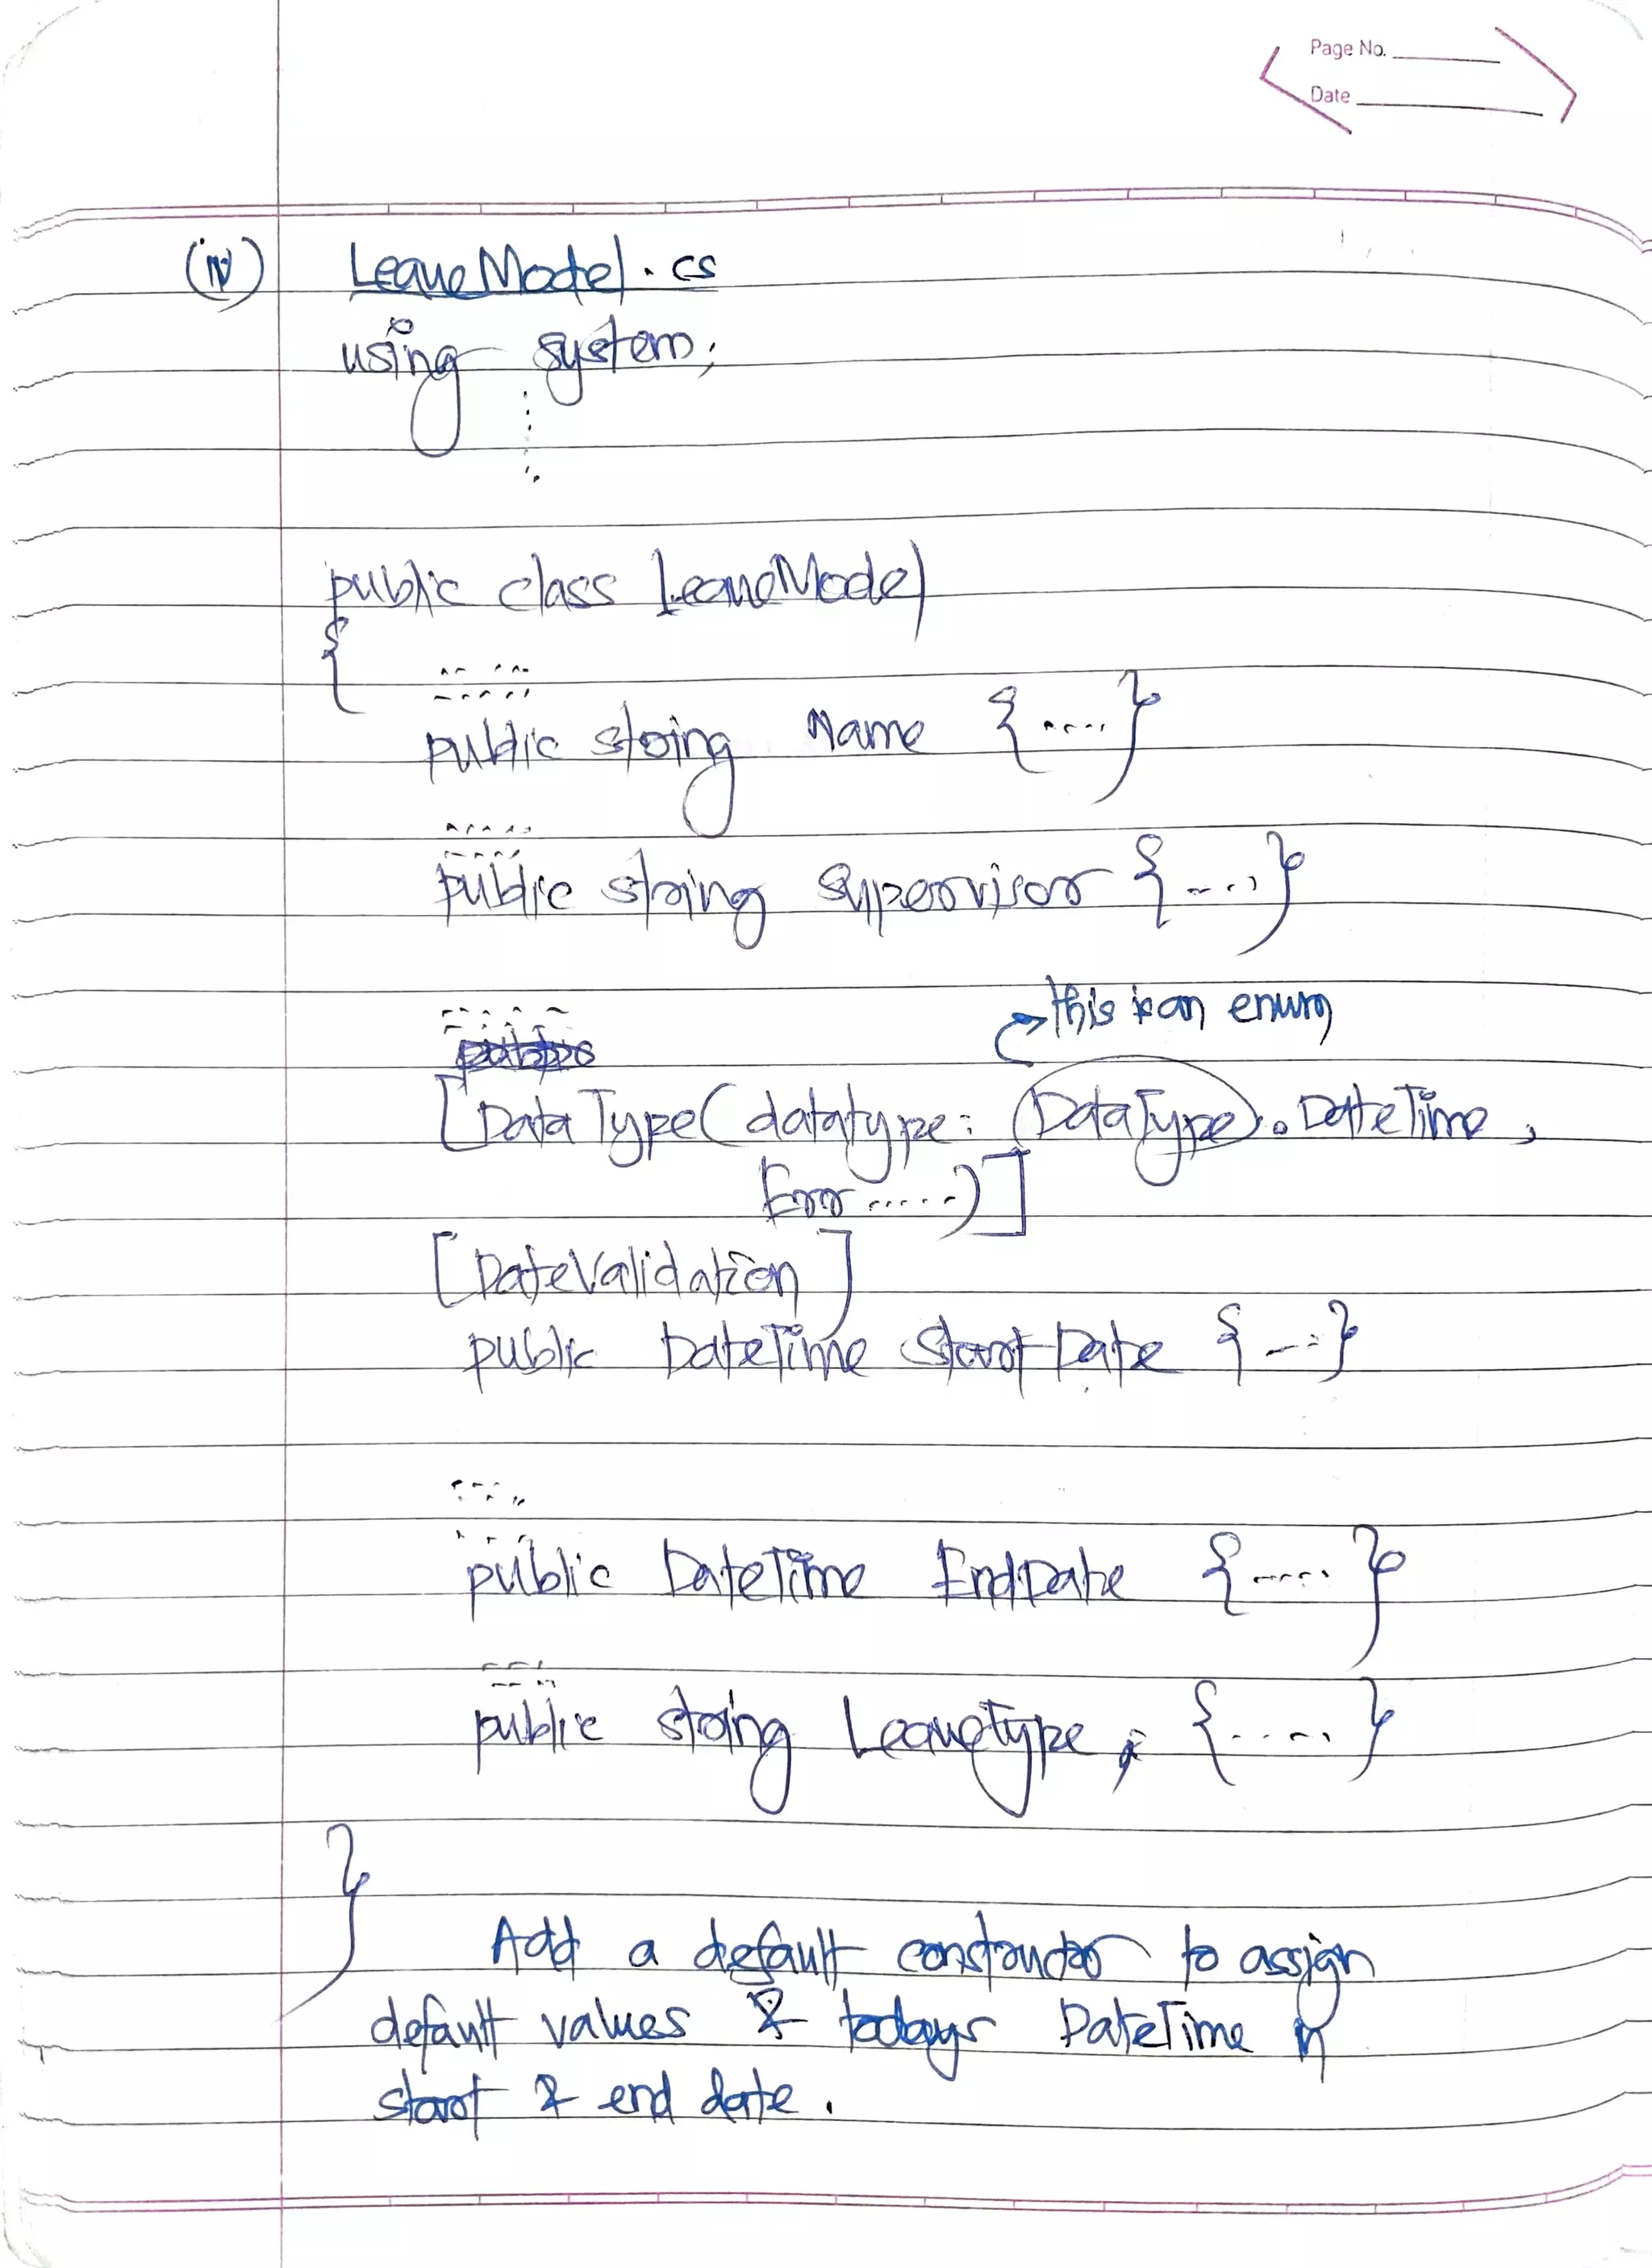 Page No.
Date
(iv) LeaveModel.cs
using system;
public class LeaveModel
{
public string Name {....}
public string Supervisor {....}
this is an enum
[DataType(datatype: DataType.DateTime,
Error.....)]
[DateValidation]
public DateTime StartDate {...}
public DateTime EndDate {.....}
public string Leavetype {.....}
}
Add a default constructor to assign
default values & todays DateTime in
start & end date.